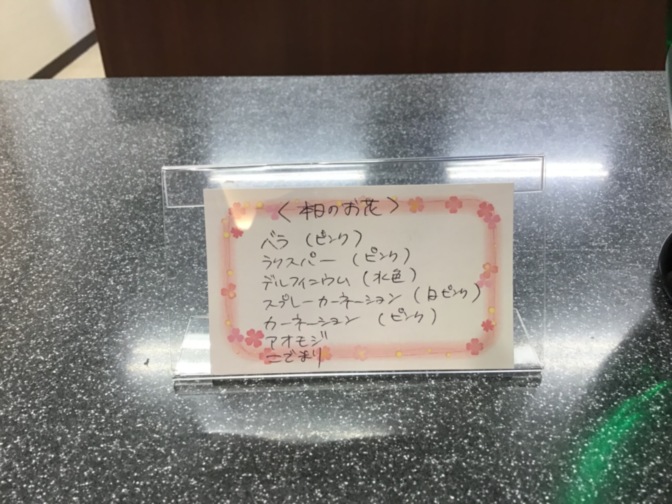 〈本日のお花〉
ベラ（ピンク）
ラクスパー（ピンク）
デルフィニウム（水色）
スプレーカーネーション（白ピンク）
カーネーション（ピンク）
アオモジ
こでまり